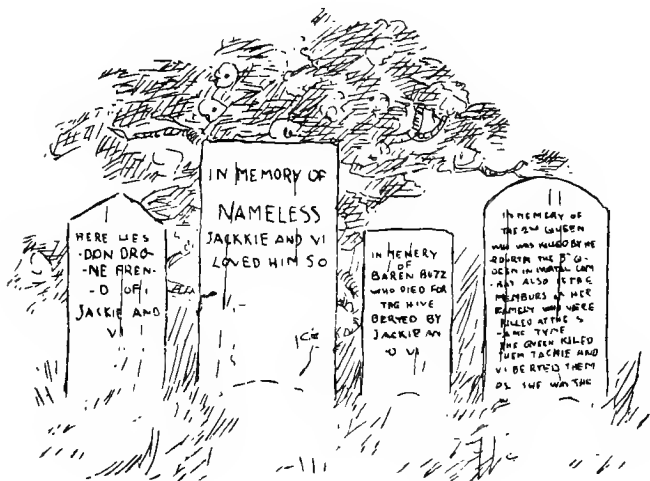 HERE LIES
-DON DRO-
-NE FREN-
-D OF
JACKIE AND
VI
IN MEMORY OF
NAMELESS
JACKKIE AND VI
LOVED HIM SO
IN MEMERY
OF
BAREN BUZZ
WHO DIED FOR
THE HIVE
BERYED BY
JACKIE AN
D VI
IN MEMERY OF
THE 2ND QUEEN
WHO WAS KILLED BY HE
THE 3RD Q-
UEEN IN MORTAL COM
-BAT ALSO THE
MEMBURS OF HER
FAMELY WHO WERE
KILLED AT THE S
-AME TYME
THE QUEEN KILLED
THEM JACKIE AND
VI BERYED THEM
AS SHE WAS THE